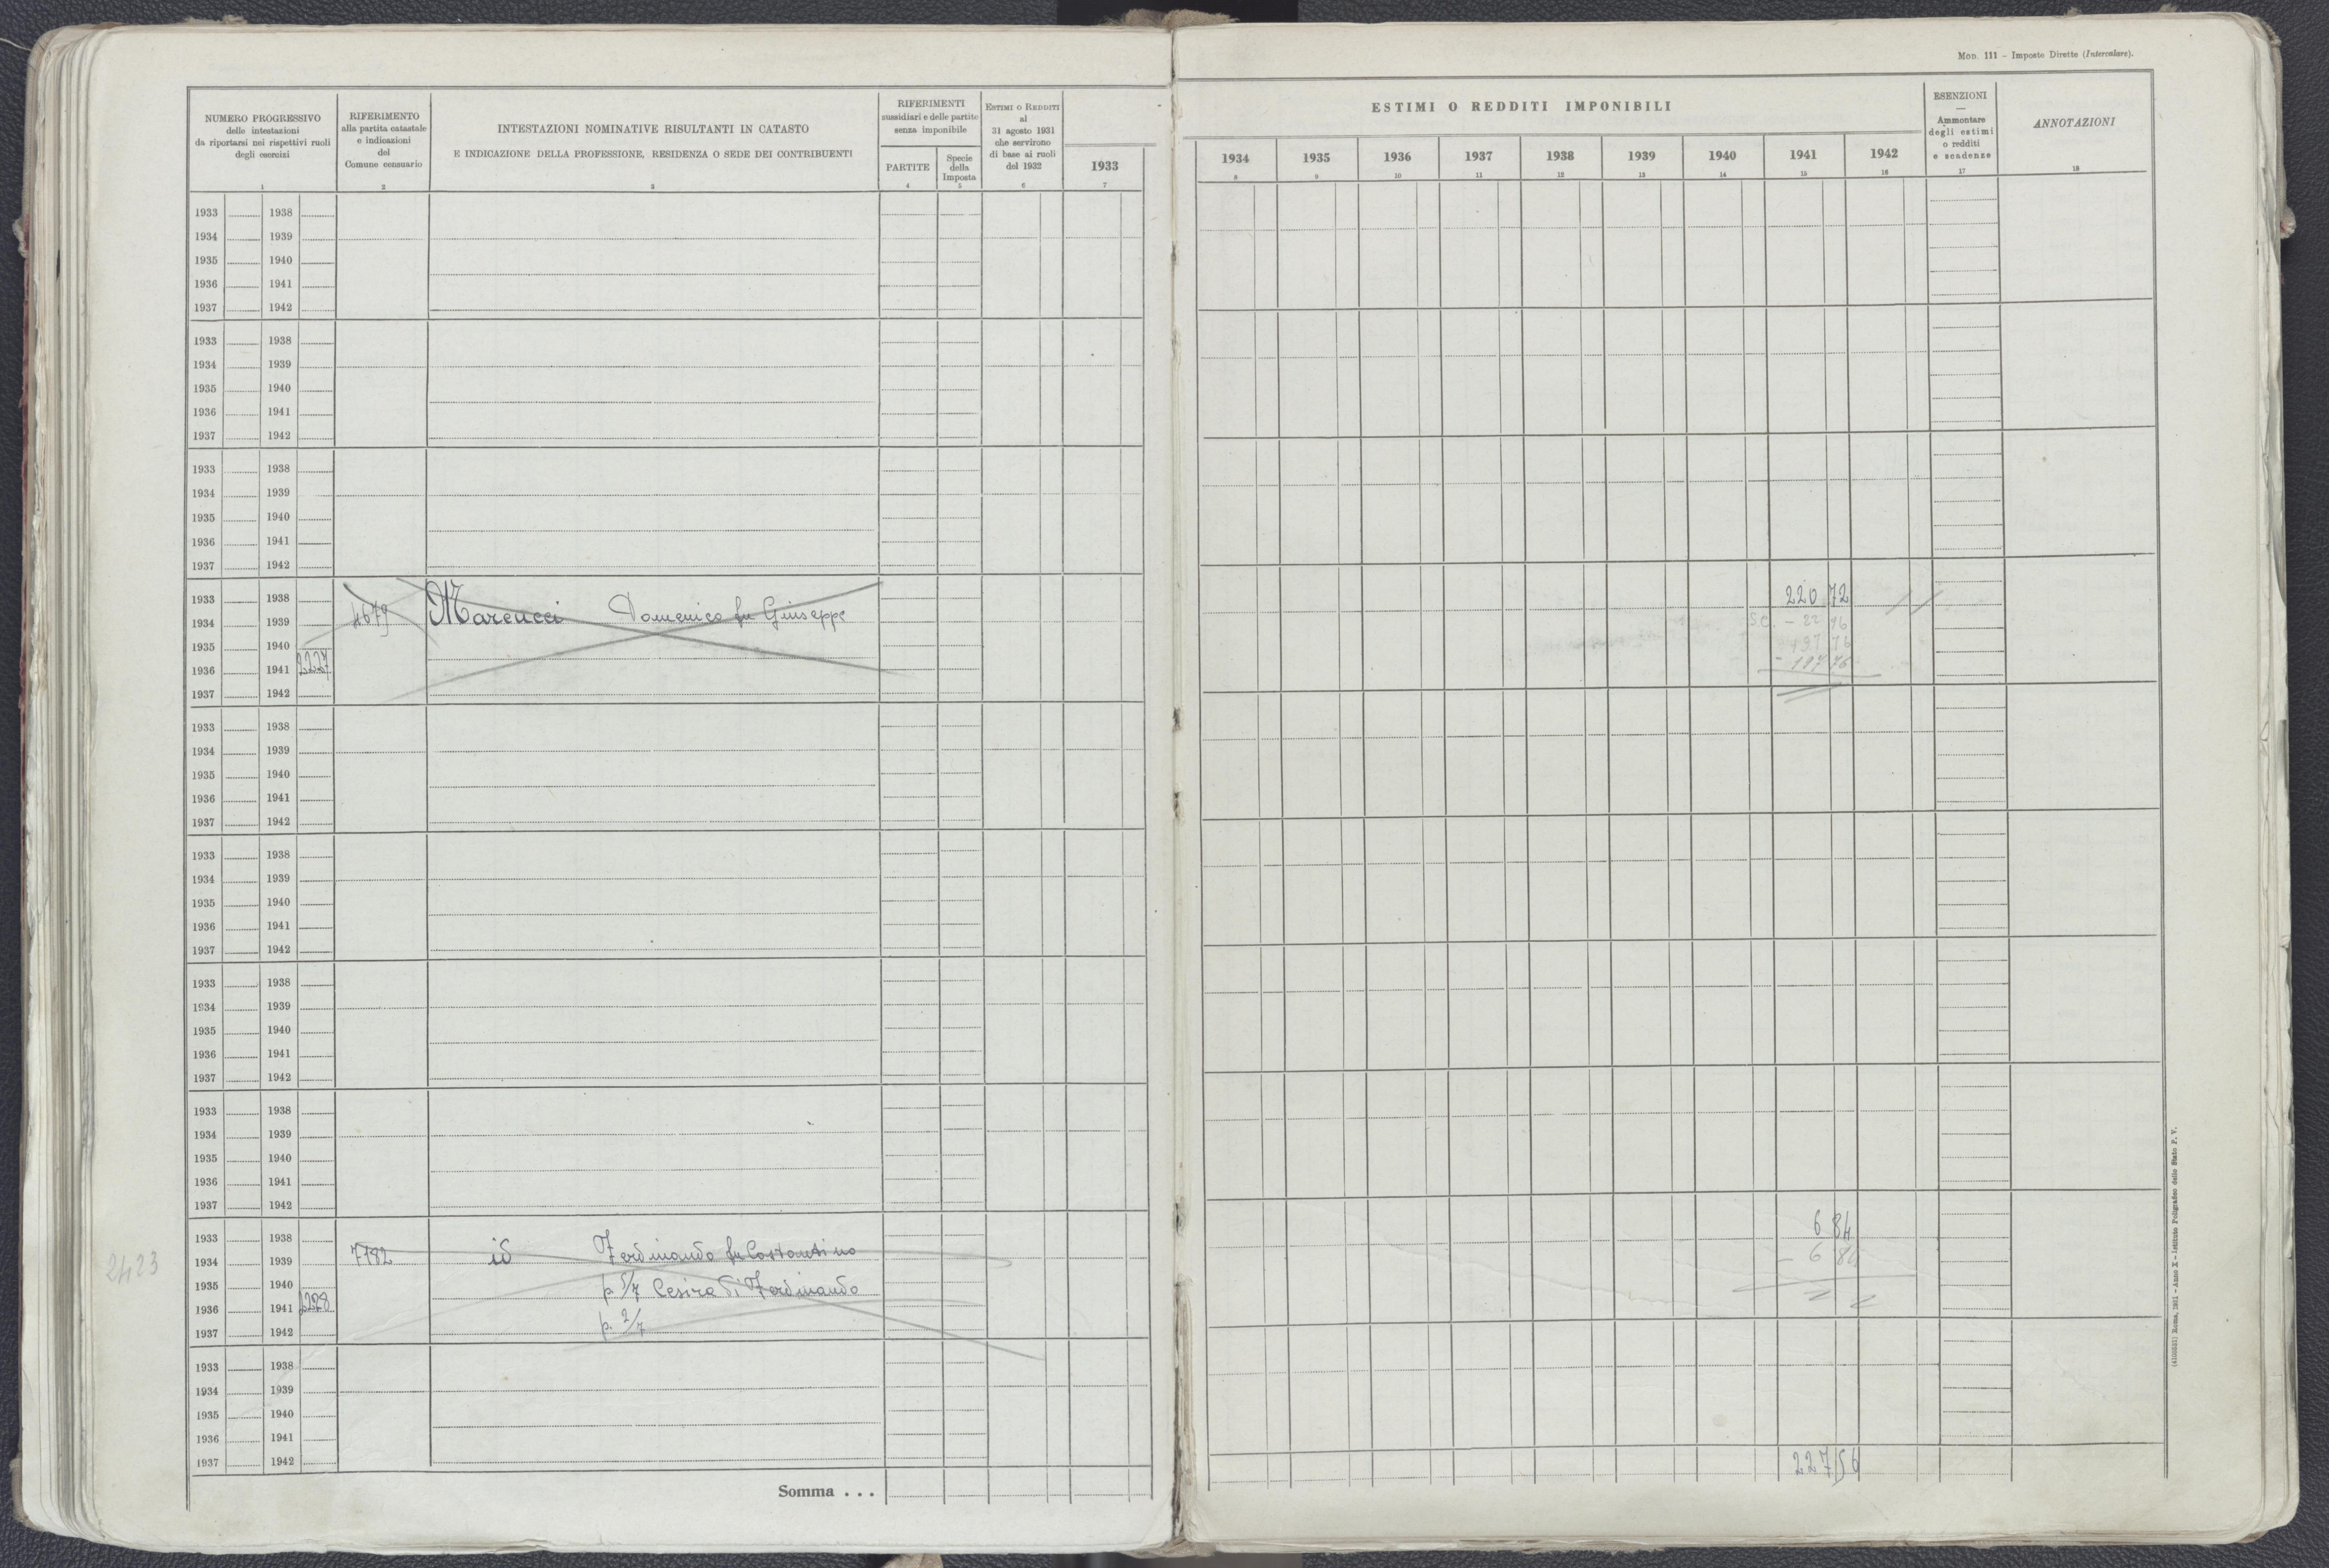 Mod. 111 – Imposte Dirette (Intercalare).
NUMERO PROGRESSIVO
delle intestazioni
da riportarsi nei rispettivi ruoli
degli esercizi
1
RIFERIMENTO
alla partita catastale
e indicazioni
del
Comune censuario
2
INTESTAZIONI NOMINATIVE RISULTANTI IN CATASTO
E INDICAZIONE DELLA PROFESSIONE, RESIDENZA O SEDE DEI CONTRIBUENTI
3
RIFERIMENTI
sussidiari e delle partite
senza imponibile
PARTITE
4
Specie
della
Imposta
5
ESTIMI O REDDITI
al
31 agosto 1931
che servirono
di base ai ruoli
del 1932
6
1933
7
ESTIMI O REDDITI IMPONIBILI
1934 1935 1936 1937 1938 1939 1940 1941 1942
8 9 10 11 12 13 14 15 16
ESENZIONI
—
Ammontare
degli estimi
o redditi
e scadenze
17
ANNOTAZIONI
18
1933 1938
1934 1939
1935 1940
1936 1941
1937 1942
1933 1938
1934 1939
1935 1940
1936 1941
1937 1942
1933 1938
1934 1939
1935 1940
1936 1941
1937 1942
1933 1938 220 72
1934 1939 4679 Marcucci Domenico fu Giuseppe SC. - 22 96
1935 1940 197 76
1936 1941 2227 - 197 76
1937 1942
1933 1938
1934 1939
1935 1940
1936 1941
1937 1942
1933 1938
1934 1939
1935 1940
1936 1941
1937 1942
1933 1938
1934 1939
1935 1940
1936 1941
1937 1942
1933 1938
1934 1939
1935 1940
1936 1941
1937 1942
1933 1938 6 84
2423 1934 1939 7182 id Ferdinando fu Costantino - 6 84
1935 1940 p. 5/7 Cesira di Ferdinando
1936 1941 2228
1937 1942 p. 2/7
1933 1938
1934 1939
1935 1940
1936 1941
1937 1942 227 56
Somma . . .
(4100551) Roma, 1931 – Anno X – Istituto Poligrafico dello Stato P. V.